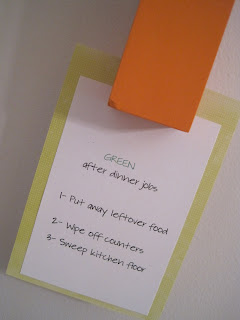 GREEN
after dinner jobs
1- Put away leftover food
2- Wipe off counters
3- Sweep kitchen floor